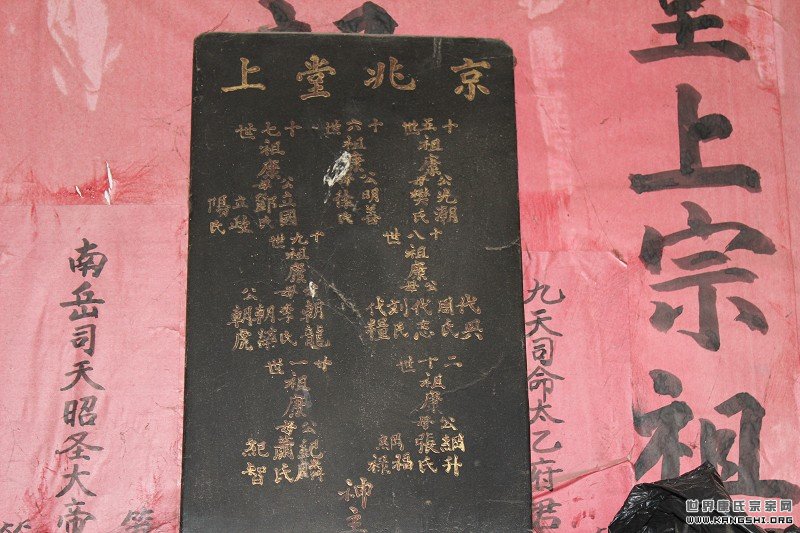 上宗祖
九天司命太乙府君
京兆堂上
十五世祖康公光潮
母樊氏
十六世祖康公明善
氏
十七世祖康公立國
母鄭氏
立岐
陽氏
十八世祖康公代興
母周氏
代志
刘氏
代糧
十九世祖康公朝龍
母李氏
朝榮
公朝虎
二十世祖康公綱升
母張氏
綱福
綱祿
廿一世祖康公紀麟
母蕭氏
紀智
神主
南岳司天昭圣大帝
世界康氏宗亲网
WWW.KANGSHI.ORG